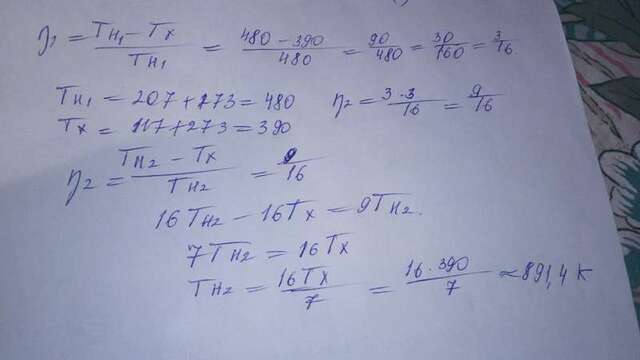 η₁ = (Tн₁ − Tх)/Tн₁ = (480 − 390)/480 = 90/480 = 30/160 = 3/16.
Tн₁ = 207 + 273 = 480    η₂ = (3·3)/16 = 9/16
Tх = 117 + 273 = 390
η₂ = (Tн₂ − Tх)/Tн₂ = 9/16
16Tн₂ − 16Tх = 9Tн₂.
7Tн₂ = 16Tх
Tн₂ = 16Tх/7 = (16·390)/7 ≈ 891,4 К